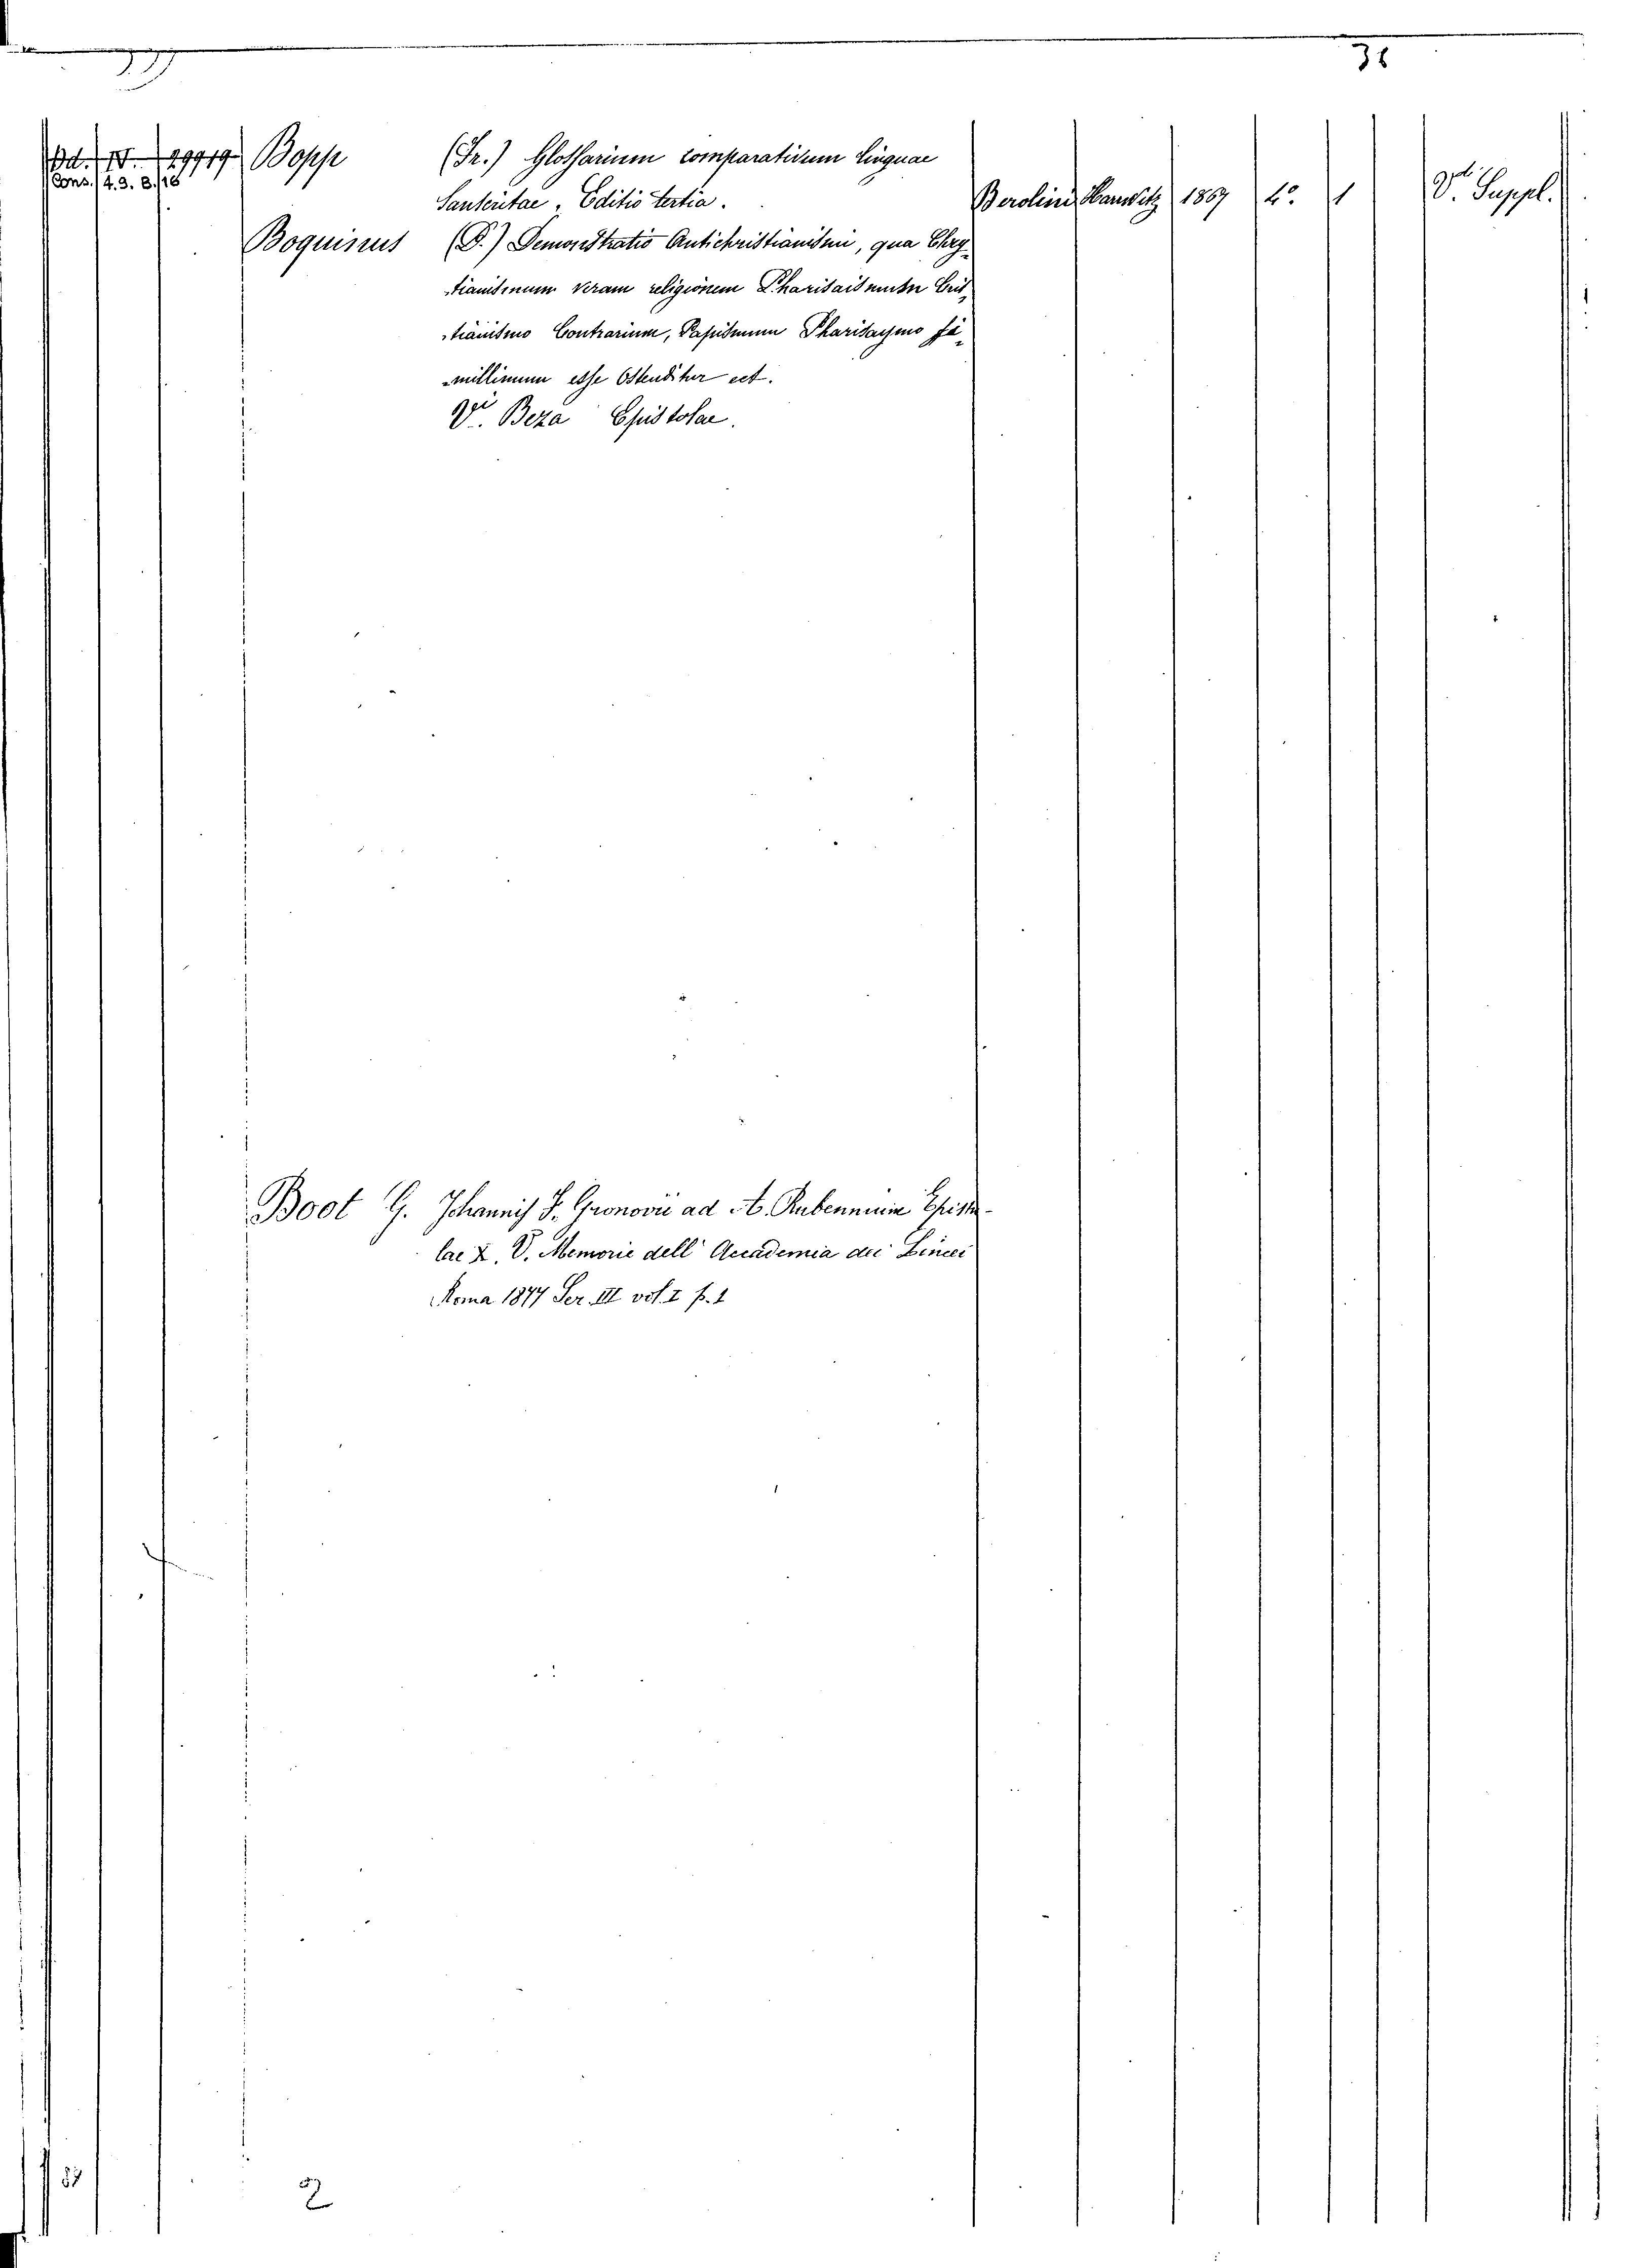 36
Bd. IV. 29919 Bopp (Fr.) Glossarium comparativum linguae
Cons. 4. 3. B. 16
Sanscritae, Editio tertia. Berolini Harwitz 1867 4º. 1 V. Suppl.
Boquinus (P.) Demonstratio Antichristianismi, qua Chry-
-tianismum veram religionem Pharisaismum Cris-
-tianismo Contrarium, Papismum Pharisaysmo si-
-millimum esse Ostenditur ect.
Vi. Beza Epistolae.
Boot G. Johannis F. Gronovii ad A. Rubennium Episto-
lae X. V. Memorie dell' Accademia dei Lincei
Roma 1877 Ser. III vol. I p. 1
57
2